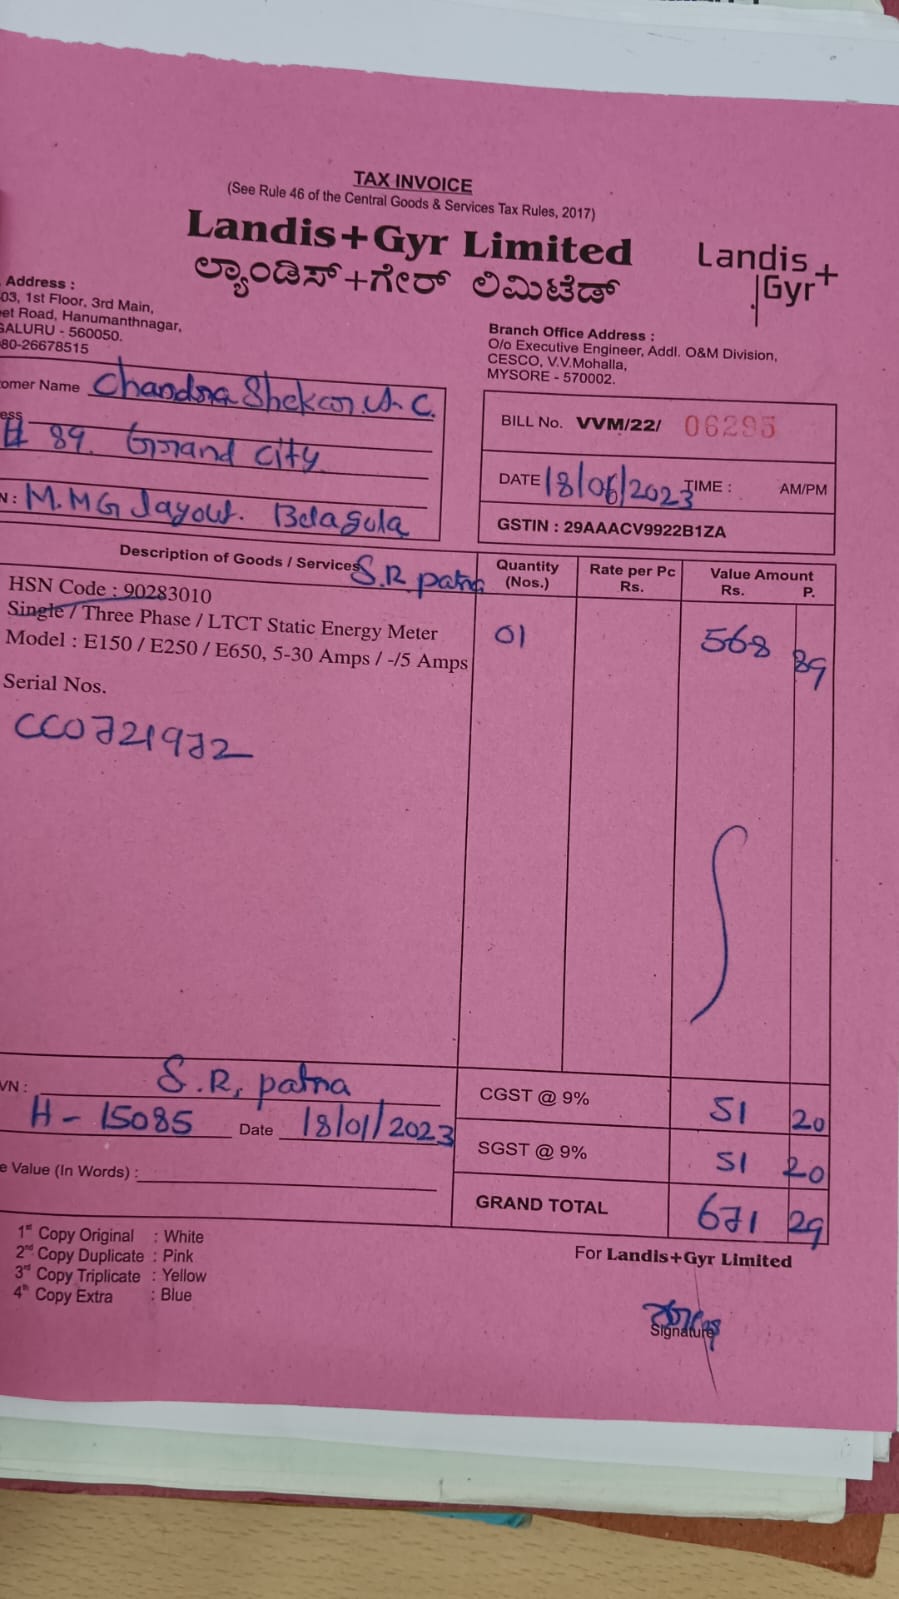 TAX INVOICE
(See Rule 46 of the Central Goods & Services Tax Rules, 2017)
Landis+Gyr Limited
ಲ್ಯಾಂಡಿಸ್+ಗೇರ್ ಲಿಮಿಟೆಡ್
Landis
Gyr+
Address :
03, 1st Floor, 3rd Main,
et Road, Hanumanthnagar,
GALURU - 560050.
80-26678515
Branch Office Address :
O/o Executive Engineer, Addl. O&M Division,
CESCO, V.V.Mohalla,
MYSORE - 570002.
omer Name Chandra Shekar
ess
# 89. Grand city
N : M.MG Layout. Belagula
BILL No. VVM/22/ 06295
DATE 18/06/2023 TIME : AM/PM
GSTIN : 29AAACV9922B1ZA
Description of Goods / Services S.R patna
Quantity (Nos.)
Rate per Pc Rs.
Value Amount Rs. P.
HSN Code : 90283010
Single / Three Phase / LTCT Static Energy Meter
Model : E150 / E250 / E650, 5-30 Amps / -/5 Amps
01 568 89
Serial Nos.
CC0721972
VN : S.R, patna
H - 15085 Date 18/01/2023
e Value (In Words) :
CGST @ 9% 51 20
SGST @ 9% 51 20
GRAND TOTAL 671 29
1st Copy Original : White
2nd Copy Duplicate : Pink
3rd Copy Triplicate : Yellow
4th Copy Extra : Blue
For Landis+Gyr Limited
Signature